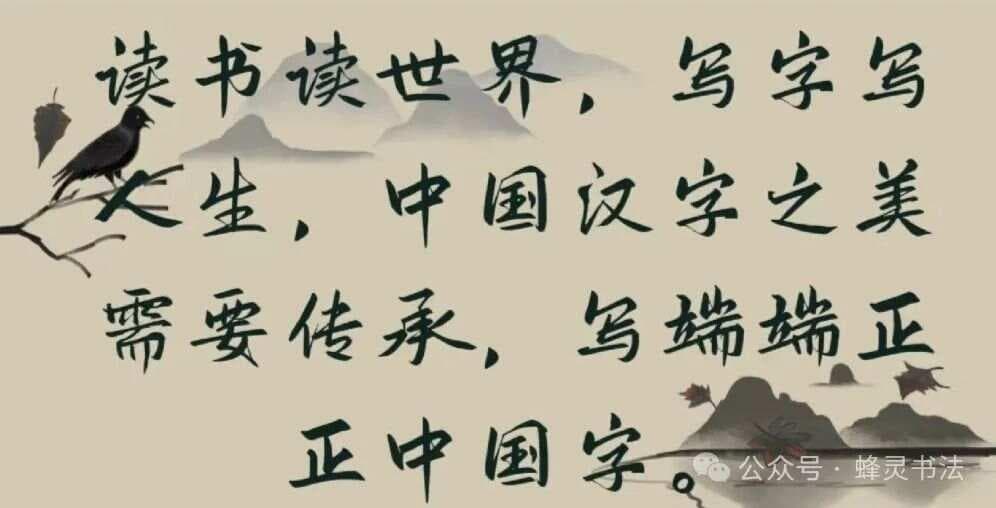 读书读世界，写字写
人生，中国汉字之美
需要传承，写端端正
正中国字。
公众号·蜂灵书法